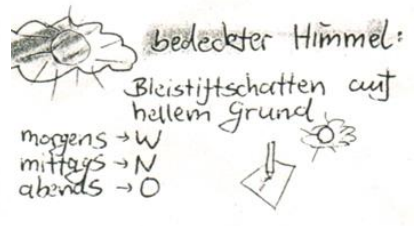 bedeckter Himmel:
Bleistiftschatten auf
hellem Grund
morgens → W
mittags → N
abends → O